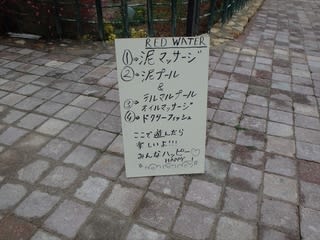 RED WATER
①⇒泥マッサージ
②⇒泥プール
&
テルマルプール
③⇒オイルマッサージ
④⇒ドクターフィッシュ
ここで遊んだら
楽しいよ!!!
みんなハッピー♡
HAPPY!